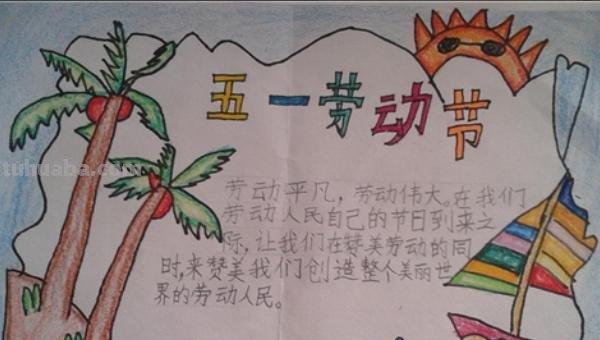 五一劳动节
tuhuaba.com
劳动平凡，劳动伟大。在我们
劳动人民自己的节日到来之
际，让我们在赞美劳动的同
时，来赞美我们创造整个美丽世
界的劳动人民。